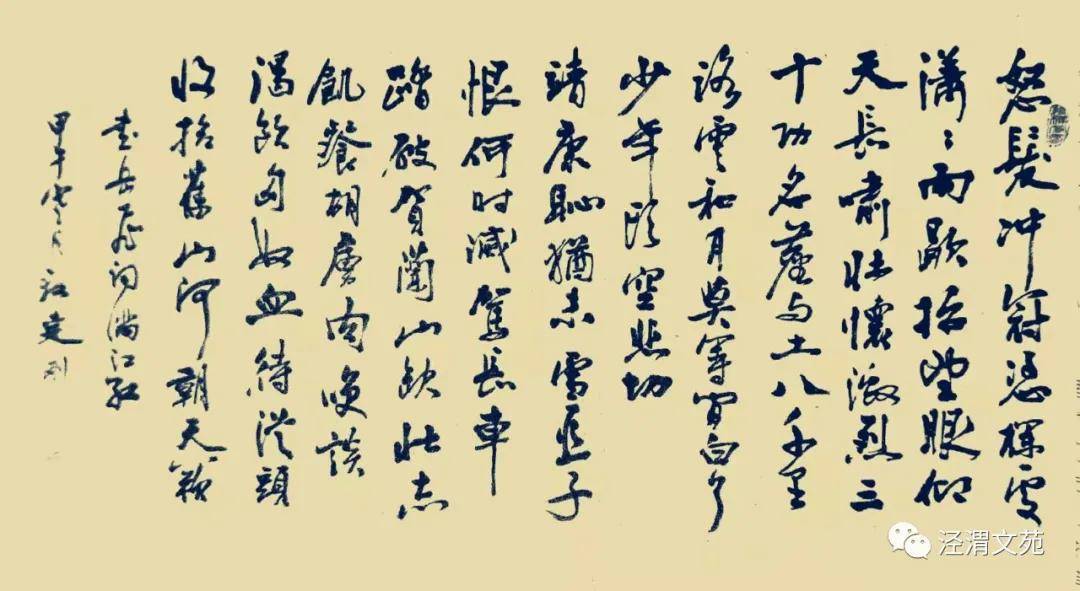 怒髮冲冠憑欄處
瀟〻雨歇抬望眼仰
天長嘯壯懷激烈三
十功名塵与土八千里
路雲和月莫等闲白了
少年頭空悲切
靖康恥猶未雪臣子
恨何时滅駕長車
踏破賀蘭山缺壯志
飢餐胡虜肉笑談
渴飲匈奴血待從頭
收拾舊山河朝天闕
书岳飛词满江红
甲午
泾渭文苑